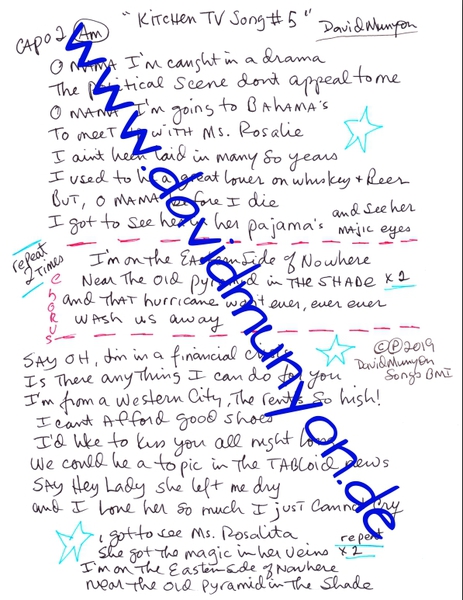 "Kitchen TV Song #5"
David Munyon
CAPO 2 Am
O MAMA I'm caught in a drama
The political Scene dont appeal to me
O MAMA I'm going to BAHAMA's
To meet WITH Ms. Rosalie
I aint been laid in many So years
I used to be a great lover on whiskey + Beer
BUT, O MAMA before I die
I got to see her in her pajama's and See her
majic eyes
repeat
2 Times
CHORUS
I'm on the Eastern Side of Nowhere
Near The Old Pyramid in THE SHADE x 2
and THAT hurricane wont ever, ever ever
WASH US away
SAY OH, I'm in a financial
Is There anyThing I can do for you
I'm from a Western City, The rent's So high!
I cant Afford good Shoes
I'd like to Kiss you all night long
We could be a topic in The TABloid news
SAY Hey Lady she left me dry
and I Love her So much I just Cannot Cry
©℗2019
David Munyon
Songs BMI
I got to see Ms. Rosalita
She got the magic in her Veins
repeat
x 2
I'm on the Eastern Side of Nowhere
near the Old Pyramid in the Shade
www.davidmunyon.de